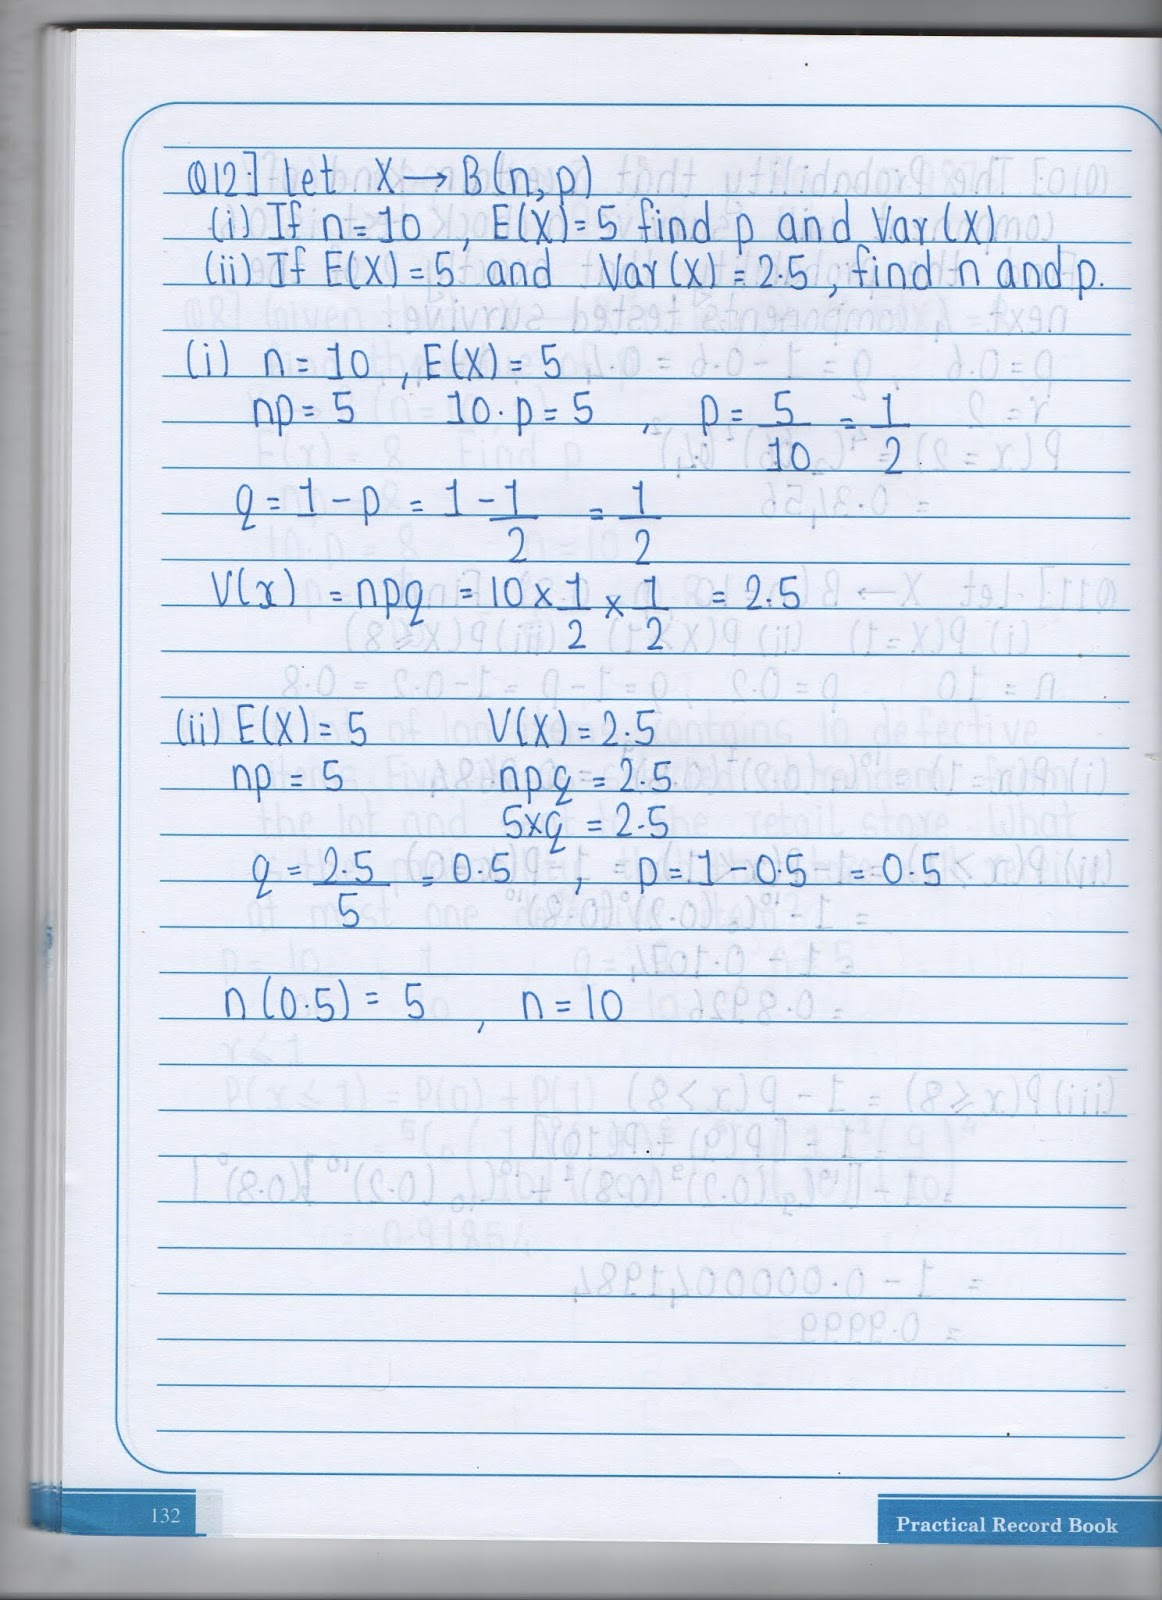 Q12] Let X → B(n,p)
(i) If n = 10 , E(X) = 5 find p and Var(X)
(ii) If E(X) = 5 and Var(X) = 2.5 , find n and p.
(i) n = 10 , E(X) = 5
np = 5 10·p = 5 , p = 5/10 = 1/2
q = 1 - p = 1 - 1/2 = 1/2
V(x) = npq = 10 × 1/2 × 1/2 = 2.5
(ii) E(X) = 5 V(X) = 2.5
np = 5 npq = 2.5
5×q = 2.5
q = 2.5/5 = 0.5 , p = 1 - 0.5 = 0.5
n(0.5) = 5 , n = 10
132
Practical Record Book